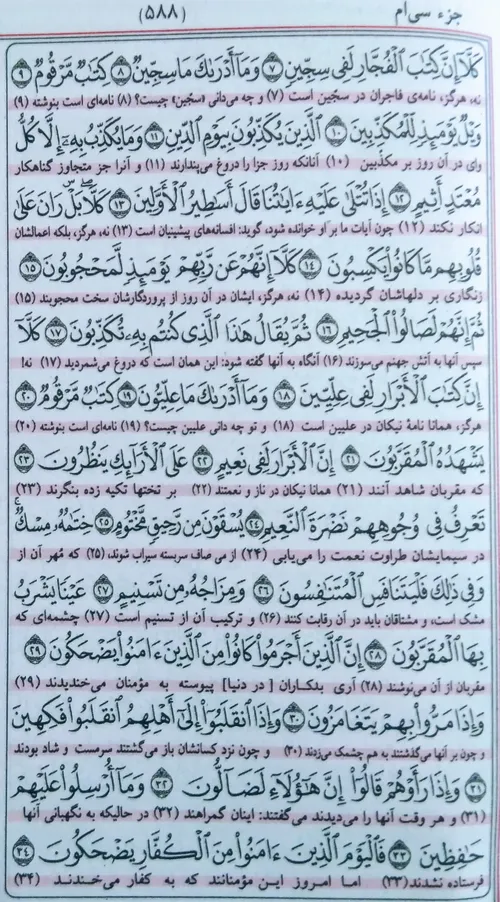 جزء سی‌ام
(۵۸۸)
كَلَّا إِنَّ كِتَٰبَ ٱلْفُجَّارِ لَفِى سِجِّينٍ ۷ وَمَآ أَدْرَىٰكَ مَا سِجِّينٌ ۸ كِتَٰبٌ مَّرْقُومٌ ۹
نه، هرگز، نامه‌ی فاجران در سجّین است (۷) و چه می‌دانی «سجّین» چیست؟ (۸) نامه‌ای است نوشته (۹)
وَيْلٌ يَوْمَئِذٍ لِّلْمُكَذِّبِينَ ۱۰ ٱلَّذِينَ يُكَذِّبُونَ بِيَوْمِ ٱلدِّينِ ۱۱ وَمَا يُكَذِّبُ بِهِۦٓ إِلَّا كُلُّ
وای در آن روز بر مکذّبین (۱۰) آنانکه روز جزا را دروغ می‌پندارند (۱۱) و آنرا جز متجاوز گناهکار
مُعْتَدٍ أَثِيمٍ ۱۲ إِذَا تُتْلَىٰ عَلَيْهِ ءَايَٰتُنَا قَالَ أَسَٰطِيرُ ٱلْأَوَّلِينَ ۱۳ كَلَّا ۖ بَلْ ۜ رَانَ عَلَىٰ
انکار نکند (۱۲) چون آیات ما بر او خوانده شود، گوید: افسانه‌های پیشینیان است (۱۳) نه، هرگز، بلکه اعمالشان
قُلُوبِهِم مَّا كَانُوا۟ يَكْسِبُونَ ۱۴ كَلَّآ إِنَّهُمْ عَن رَّبِّهِمْ يَوْمَئِذٍ لَّمَحْجُوبُونَ ۱۵
زنگاری بر دلهاشان گردیده (۱۴) نه، هرگز، ایشان در آن روز از پروردگارشان سخت محجوبند (۱۵)
ثُمَّ إِنَّهُمْ لَصَالُوا۟ ٱلْجَحِيمِ ۱۶ ثُمَّ يُقَالُ هَٰذَا ٱلَّذِى كُنتُم بِهِۦ تُكَذِّبُونَ ۱۷ كَلَّآ
سپس آنها به آتش جهنم می‌سوزند (۱۶) آنگاه به آنها گفته شود: این همان است که دروغ می‌شمردید (۱۷) نه!
إِنَّ كِتَٰبَ ٱلْأَبْرَارِ لَفِى عِلِّيِّينَ ۱۸ وَمَآ أَدْرَىٰكَ مَا عِلِّيُّونَ ۱۹ كِتَٰبٌ مَّرْقُومٌ ۲۰
هرگز، همانا نامهٔ نیکان در علیین است (۱۸) و تو چه دانی علیین چیست؟ (۱۹) نامه‌ای است نوشته (۲۰)
يَشْهَدُهُ ٱلْمُقَرَّبُونَ ۲۱ إِنَّ ٱلْأَبْرَارَ لَفِى نَعِيمٍ ۲۲ عَلَى ٱلْأَرَآئِكِ يَنظُرُونَ ۲۳
که مقربان شاهد آنند (۲۱) همانا نیکان در ناز و نعمتند (۲۲) بر تختها تکیه زده بنگرند (۲۳)
تَعْرِفُ فِى وُجُوهِهِمْ نَضْرَةَ ٱلنَّعِيمِ ۲۴ يُسْقَوْنَ مِن رَّحِيقٍ مَّخْتُومٍ ۲۵ خِتَٰمُهُۥ مِسْكٌ ۚ
در سیمایشان طراوت نعمت را می‌یابی (۲۴) از می صاف سربسته سیراب شوند، (۲۵) که مُهر آن از
وَفِى ذَٰلِكَ فَلْيَتَنَافَسِ ٱلْمُتَنَٰفِسُونَ ۲۶ وَمِزَاجُهُۥ مِن تَسْنِيمٍ ۲۷ عَيْنًا يَشْرَبُ
مشک است، و مشتاقان باید در آن رقابت کنند (۲۶) و ترکیب آن از تسنیم است (۲۷) چشمه‌ای که
بِهَا ٱلْمُقَرَّبُونَ ۲۸ إِنَّ ٱلَّذِينَ أَجْرَمُوا۟ كَانُوا۟ مِنَ ٱلَّذِينَ ءَامَنُوا۟ يَضْحَكُونَ ۲۹
مقربان از آن می‌نوشند (۲۸) آری بدکاران [در دنیا] پیوسته به مؤمنان می‌خندیدند (۲۹)
وَإِذَا مَرُّوا۟ بِهِمْ يَتَغَامَزُونَ ۳۰ وَإِذَا ٱنقَلَبُوٓا۟ إِلَىٰٓ أَهْلِهِمُ ٱنقَلَبُوا۟ فَكِهِينَ
و چون بر آنها می‌گذشتند به هم چشمک می‌زدند (۳۰) و چون نزد کسانشان باز می‌گشتند سرمست و شاد بودند
۳۱ وَإِذَا رَأَوْهُمْ قَالُوٓا۟ إِنَّ هَٰٓؤُلَآءِ لَضَآلُّونَ ۳۲ وَمَآ أُرْسِلُوا۟ عَلَيْهِمْ
(۳۱) و هر وقت آنها را می‌دیدند می‌گفتند: اینان گمراهند (۳۲) در حالیکه به نگهبانی آنها
حَٰفِظِينَ ۳۳ فَٱلْيَوْمَ ٱلَّذِينَ ءَامَنُوا۟ مِنَ ٱلْكُفَّارِ يَضْحَكُونَ ۳۴
فرستاده نشدند (۳۳) اما امروز این مؤمنانند که به کفار می‌خندند (۳۴)